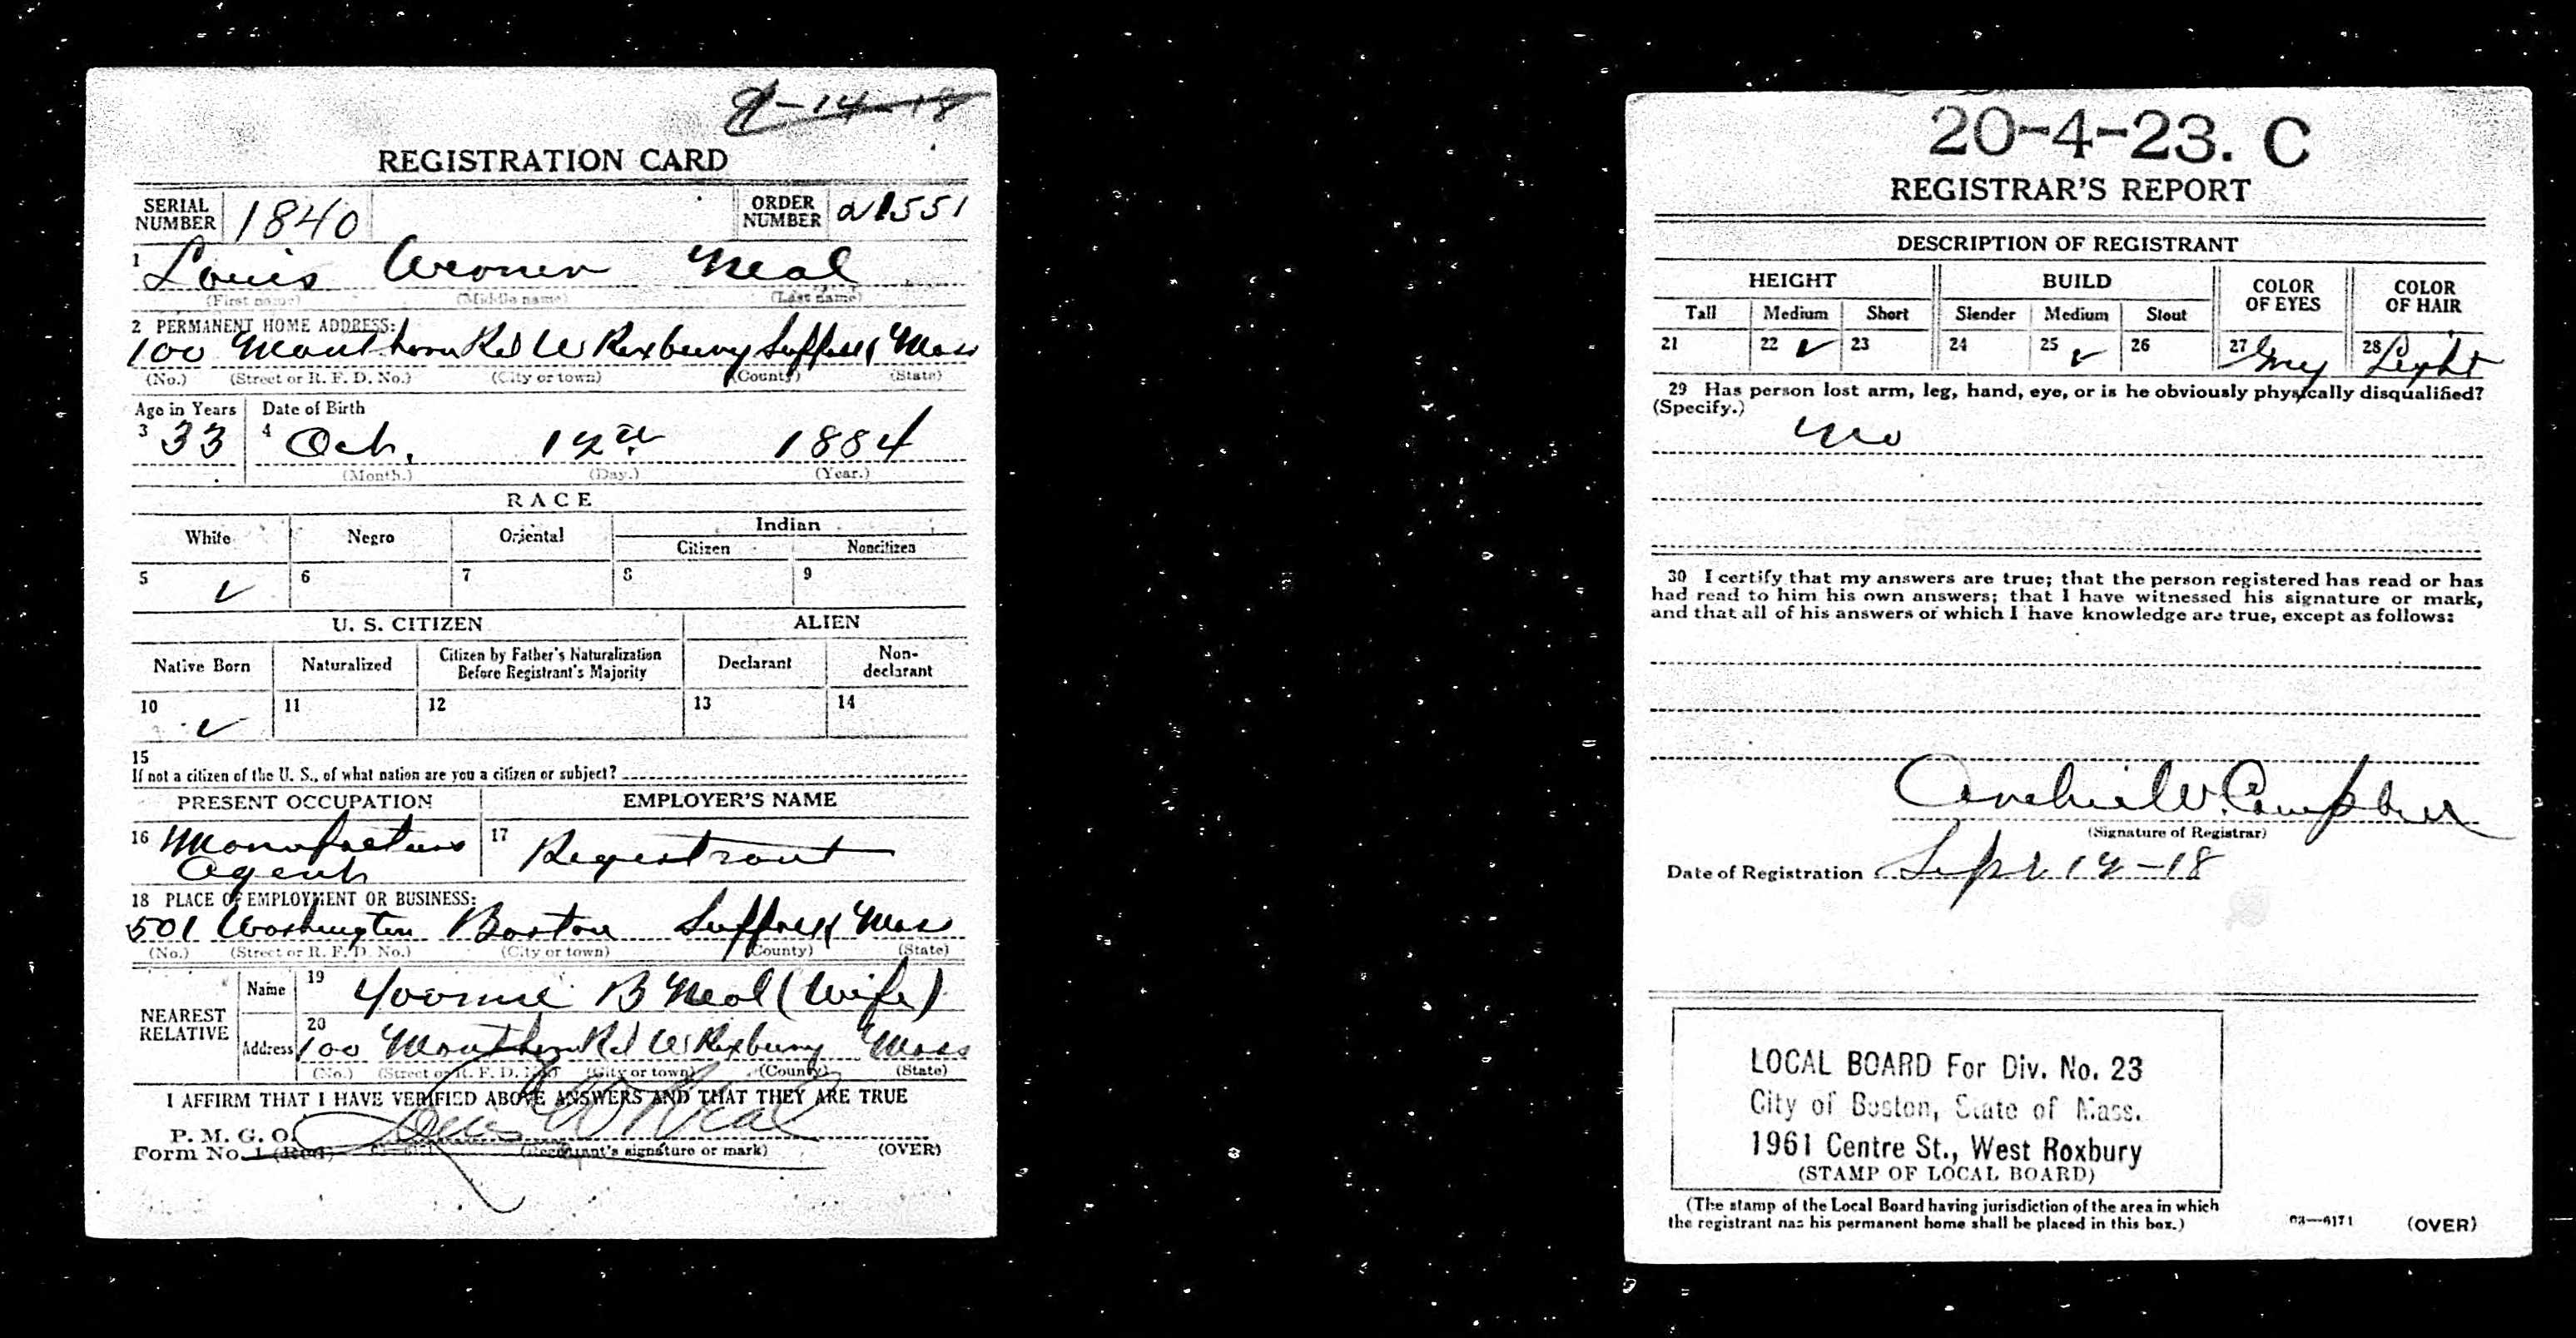 9-14-18
REGISTRATION CARD
SERIAL NUMBER 1840 ORDER NUMBER a1551
1 Louis Neal
(First name) (Middle name) (Last name)
2 PERMANENT HOME ADDRESS:
100 Rd W Roxbury Suffolk Mass
(No.) (Street or R. F. D. No.) (City or town) (County) (State)
Age in Years Date of Birth
3 33 4 Oct. 12th 1884
(Month.) (Day.) (Year.)
RACE
White Negro Oriental Indian
Citizen Noncitizen
5 ✓ 6 7 8 9
U. S. CITIZEN ALIEN
Native Born Naturalized Citizen by Father's Naturalization Before Registrant's Majority Declarant Non-declarant
10 ✓ 11 12 13 14
15
If not a citizen of the U. S., of what nation are you a citizen or subject?
PRESENT OCCUPATION EMPLOYER'S NAME
16 Manufacturers 17 Registrant
Agent
18 PLACE OF EMPLOYMENT OR BUSINESS:
501 Washington Boston Suffolk Mass
(No.) (Street or R. F. D. No.) (City or town) (County) (State)
NEAREST RELATIVE
Name 19 Yvonne B Neal (Wife)
20
Address 100 Rd W Roxbury Mass
(No.) (Street or R. F. D. No.) (City or town) (County) (State)
I AFFIRM THAT I HAVE VERIFIED ABOVE ANSWERS AND THAT THEY ARE TRUE
P. M. G. O. Louis W Neal
Form No. 1 (Red) (Registrant's signature or mark) (OVER)
20-4-23. C
REGISTRAR'S REPORT
DESCRIPTION OF REGISTRANT
HEIGHT BUILD COLOR OF EYES COLOR OF HAIR
Tall Medium Short Slender Medium Stout
21 22 ✓ 23 24 25 ✓ 26 27 Gray 28 Light
29 Has person lost arm, leg, hand, eye, or is he obviously physically disqualified?
(Specify.)
No
30 I certify that my answers are true; that the person registered has read or has
had read to him his own answers; that I have witnessed his signature or mark,
and that all of his answers of which I have knowledge are true, except as follows:
Archie W. Campbell
(Signature of Registrar)
Date of Registration Sept 12-18
LOCAL BOARD For Div. No. 23
City of Boston, State of Mass.
1961 Centre St., West Roxbury
(STAMP OF LOCAL BOARD)
(The stamp of the Local Board having jurisdiction of the area in which
the registrant has his permanent home shall be placed in this box.)
03—6171 (OVER)